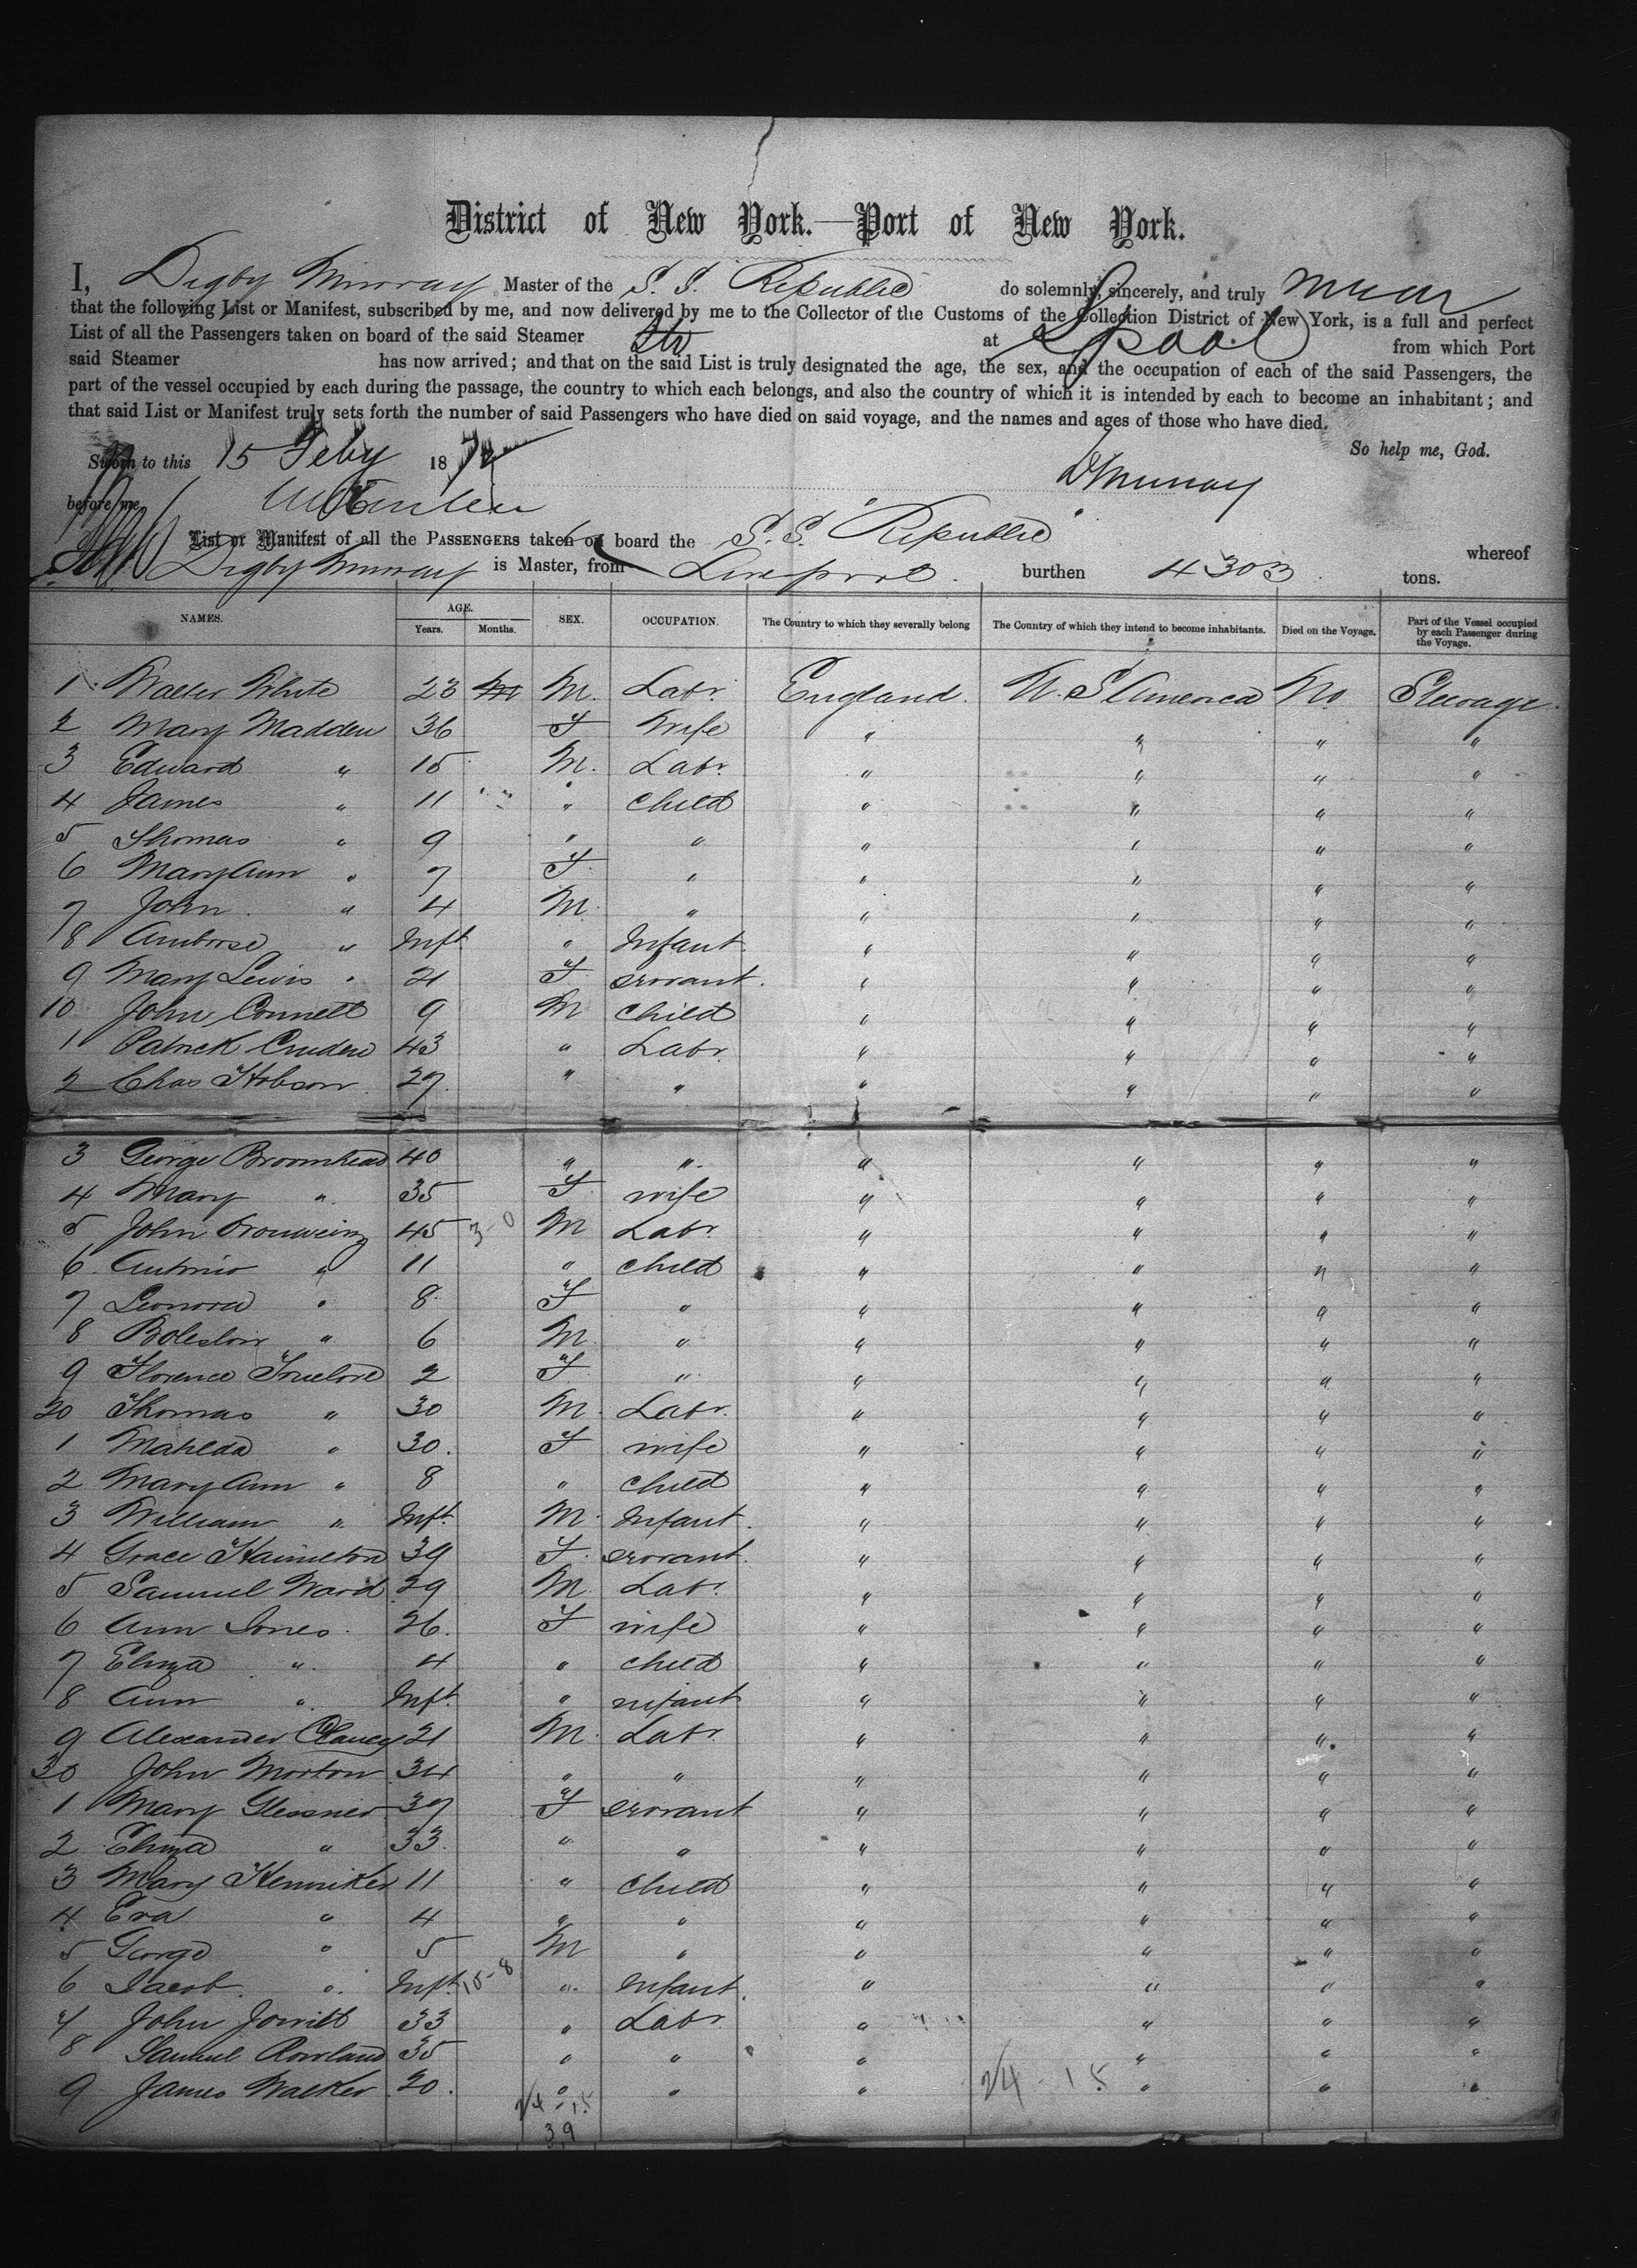 District of New York.—Port of New York.
I, Digby Murray Master of the S. S. Republic do solemnly, sincerely, and truly swear
that the following List or Manifest, subscribed by me, and now delivered by me to the Collector of the Customs of the Collection District of New York, is a full and perfect
List of all the Passengers taken on board of the said Steamer at Lpool from which Port
said Steamer has now arrived; and that on the said List is truly designated the age, the sex, and the occupation of each of the said Passengers, the
part of the vessel occupied by each during the passage, the country to which each belongs, and also the country of which it is intended by each to become an inhabitant; and
that said List or Manifest truly sets forth the number of said Passengers who have died on said voyage, and the names and ages of those who have died.
So help me, God.
Sworn to this 15 Feby 1872
DMurray
before me
List or Manifest of all the PASSENGERS taken on board the S. S. "Republic" whereof
Digby Murray is Master, from Liverpool. burthen 4303 tons.
NAMES. AGE. Years. Months. SEX. OCCUPATION. The Country to which they severally belong The Country of which they intend to become inhabitants. Died on the Voyage. Part of the Vessel occupied by each Passenger during the Voyage.
1 Walter White 23 M. Labr. England. U. S America No Steerage.
2 Mary Madden 36 F Wife " " " "
3 Edward " 15 M. Labr. " " " "
4 James " 11 " child " " " "
5 Thomas " 9 " " " " " "
6 Mary Ann " 7 F " " " " "
7 John " 4 M. " " " " "
8 Ambrose " Inft " Infant. " " " "
9 Mary Lewis " 21 F servant. " " " "
10 John Connell 9 M child " " " "
1 Patrick Cruden 43 " Labr. " " " "
2 Chas Hobson 27. " " " " " "
3 George Broomhead 40 " " " " " "
4 Mary " 35 F wife " " " "
5 John 45 3-0 M Labr. " " " "
6 Antonio " 11 " child " " " "
7 Leonora " 8 F " " " " "
8 " 6 M. " " " " "
9 Florence Truelove 2 F " " " " "
20 Thomas " 30 M. Labr. " " " "
1 Matilda " 30. F wife " " " "
2 Mary Ann " 8 " child " " " "
3 William " Inft. M. Infant. " " " "
4 Grace Hamilton 39 F servant. " " " "
5 Samuel Ward 29 M. Labr. " " " "
6 Ann Jones. 26. F wife " " " "
7 Eliza " 4 " child " " " "
8 Ann " Inft. " infant " " " "
9 Alexander Clancy 21 M. Labr. " " " "
30 John Morton 34 " " " " " "
1 Mary Glessner 37 F servant " " " "
2 Eliza " 33. " " " " " "
3 Mary Henniker 11 " child " " " "
4 Eva " 4 " " " " " "
5 George " 5 M " " " " "
6 Jacob. " Inft. 15-8 " Infant. " " " "
7 John Jowitt 33 " Labr. " " " "
8 Samuel Rowland 35 " " " " " "
9 James Walker 20. " " " " " "
24-15
24-15
39